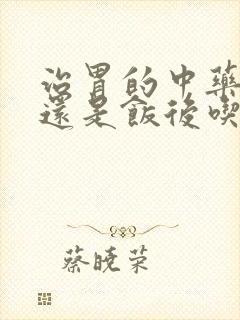 治胃的中藥
還是飯後喫
蔡曉荣